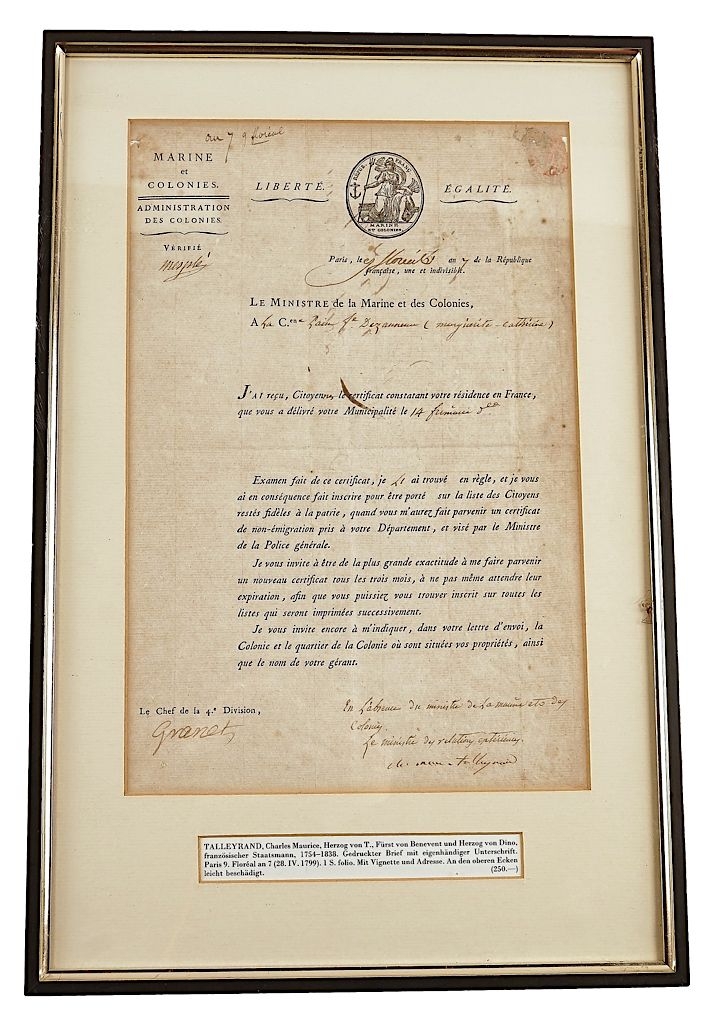 an 7 9 floréal
MARINE
et
COLONIES.
ADMINISTRATION
DES COLONIES.
VÉRIFIÉ
LIBERTÉ.
ÉGALITÉ.
MARINE
ET COLONIES.
Paris, le 9 floréal an 7 de la République
française, une et indivisible.
LE MINISTRE de la Marine et des Colonies,
A La C.enne (marguerite-catherine)
J'AI reçu, Citoyenne, le certificat constatant votre résidence en France,
que vous a délivré votre Municipalité le 14 frimaire
Examen fait de ce certificat, je l'ai trouvé en règle, et je vous
ai en conséquence fait inscrire pour être porté sur la liste des Citoyens
restés fidèles à la patrie, quand vous m'aurez fait parvenir un certificat
de non-émigration pris à votre Département, et visé par le Ministre
de la Police générale.
Je vous invite à être de la plus grande exactitude à me faire parvenir
un nouveau certificat tous les trois mois, à ne pas même attendre leur
expiration, afin que vous puissiez vous trouver inscrit sur toutes les
listes qui seront imprimées successivement.
Je vous invite encore à m'indiquer, dans votre lettre d'envoi, la
Colonie et le quartier de la Colonie où sont situées vos propriétés, ainsi
que le nom de votre gérant.
Le Chef de la 4.e Division,
Granet
En l'absence du ministre de la marine et des
Colonies.
Le ministre des relations extérieures.
TALLEYRAND, Charles Maurice, Herzog von T., Fürst von Benevent und Herzog von Dino,
französischer Staatsmann, 1754–1838. Gedruckter Brief mit eigenhändiger Unterschrift.
Paris 9. Floréal an 7 (28. IV. 1799). 1 S. folio. Mit Vignette und Adresse. An den oberen Ecken
leicht beschädigt. (250.—)